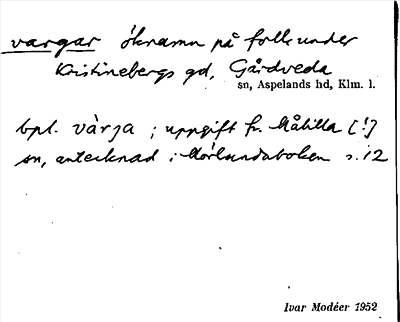 vargar öknamn på folk under
Kristinebergs gd, Gårdveda
sn, Aspelands hd, Klm. l.
bpl. várja ; uppgift fr. Målilla [!]
sn, antecknad i Mörlundaboken s. 12
Ivar Modéer 1952